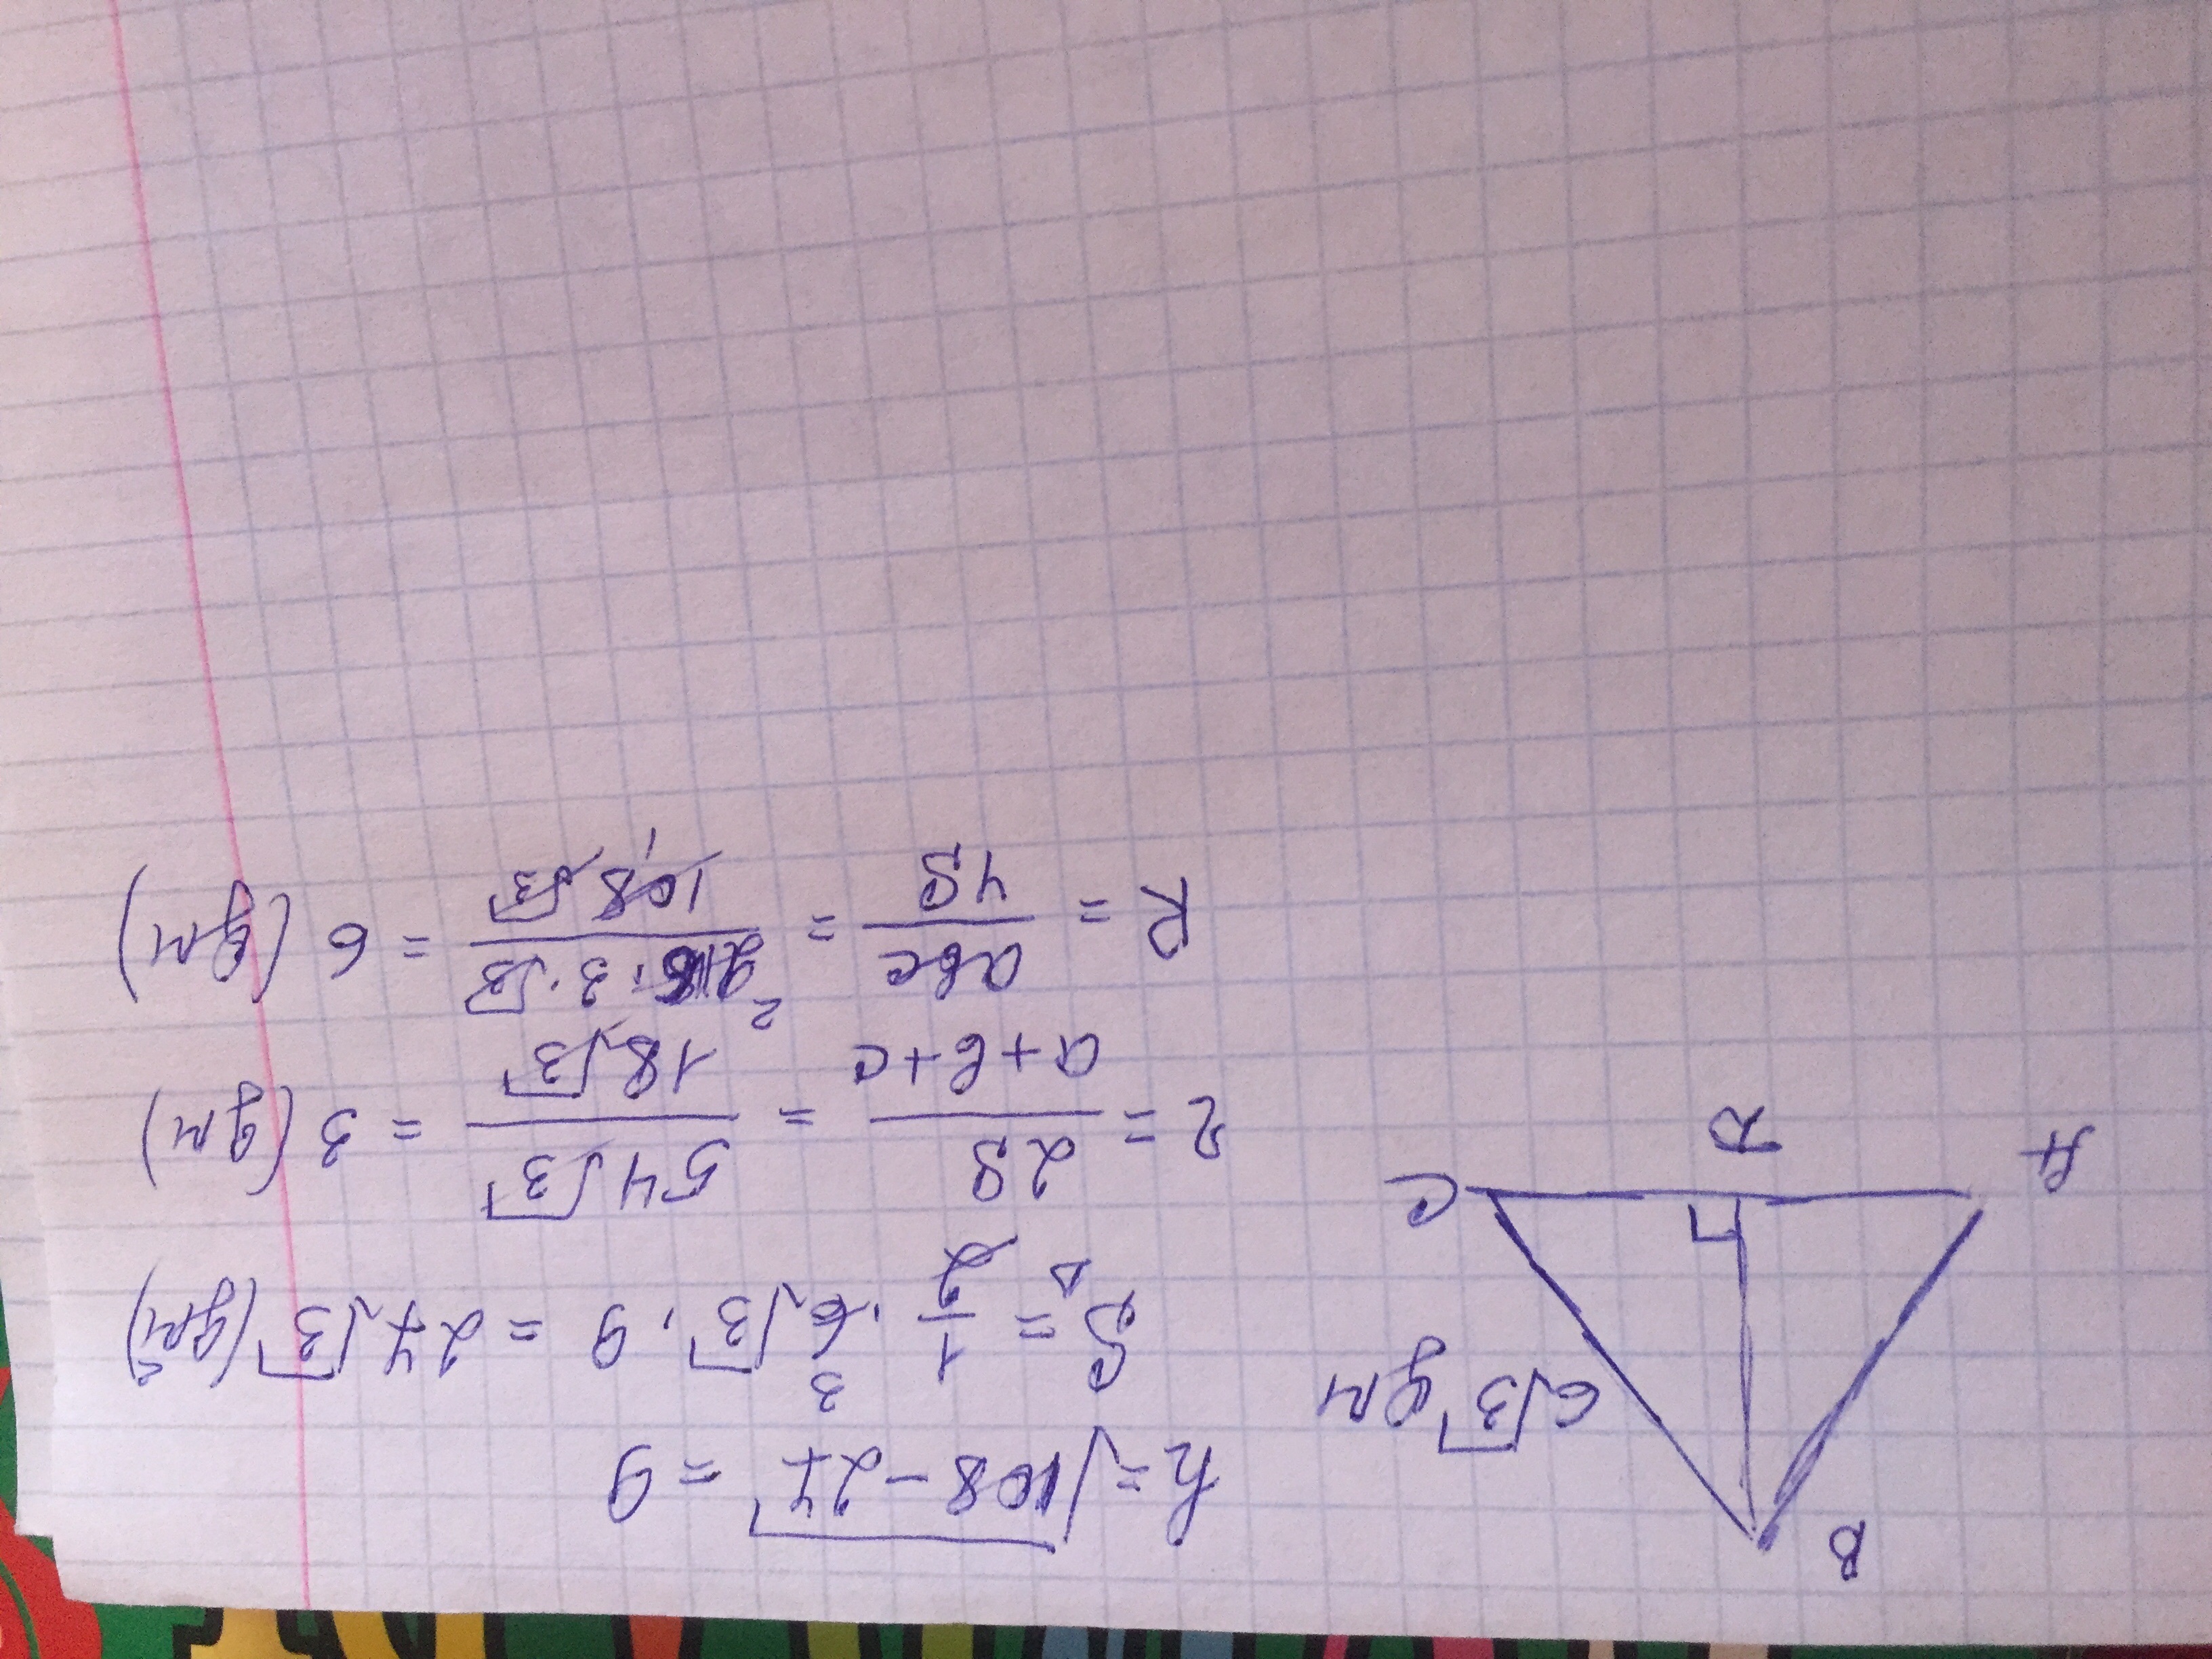 B
6√3 дм
A
D
C
h = √108 - 27 = 9
S△ = 1/2 · 6√3 · 9 = 27√3 (дм²)
3
r = 2S/a+b+c = 54√3/18√3 = 3 (дм)
R = abc/4S = 216·3·√3/108√3 = 6 (дм)
2
1